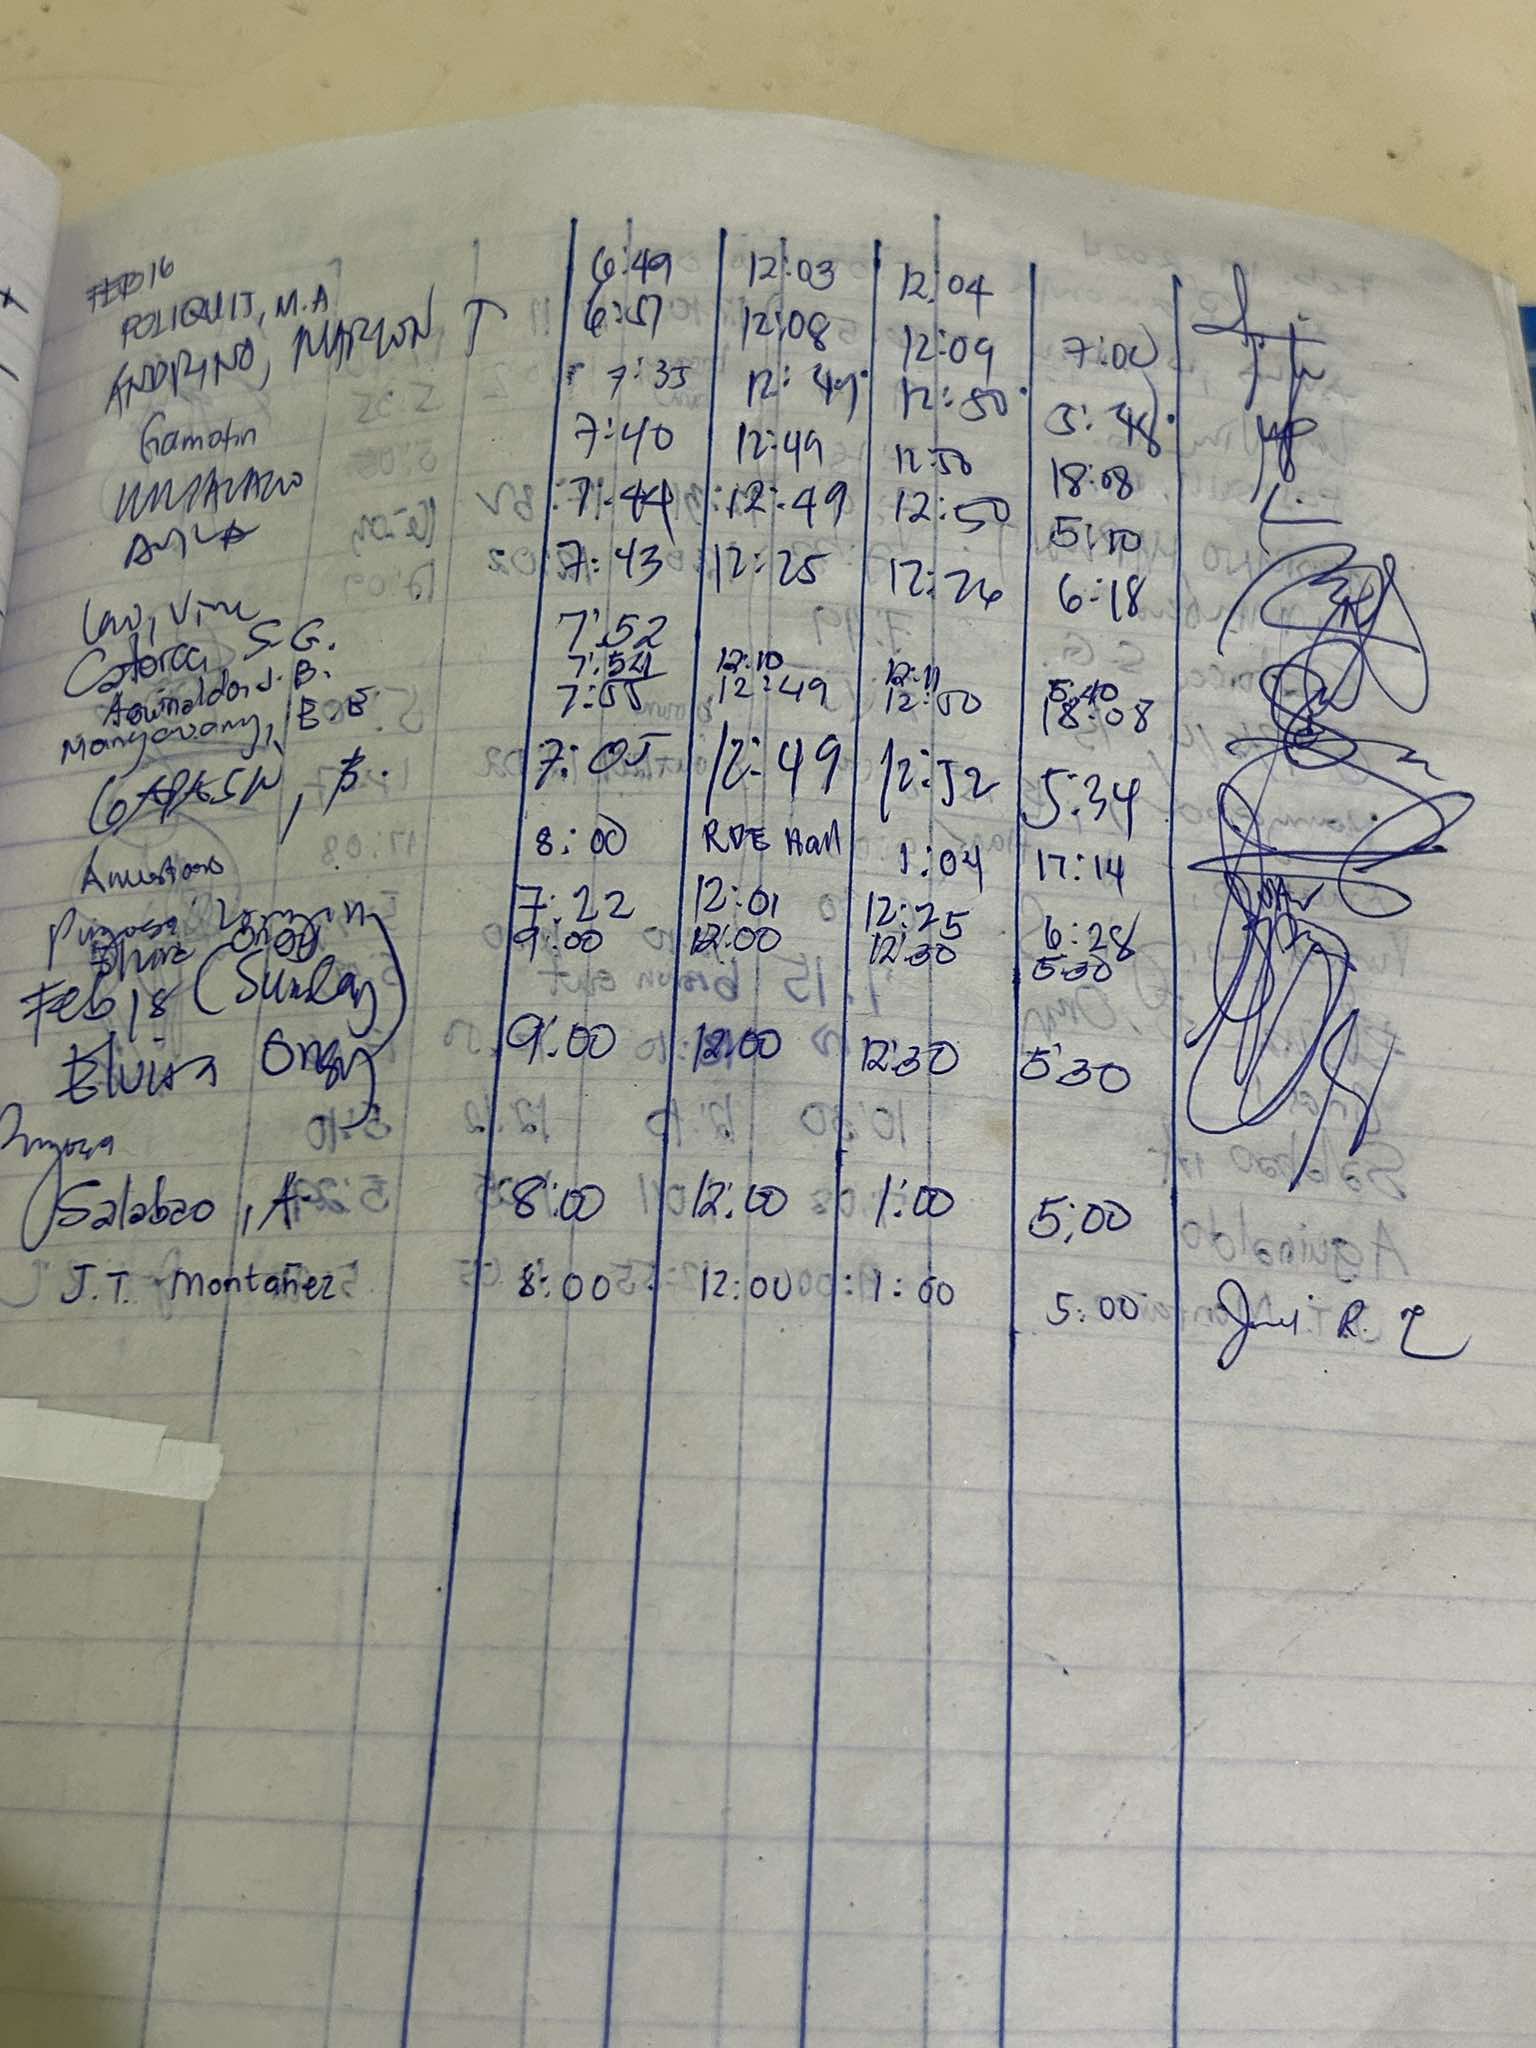 FEB 16
POLIQUIT, M.A 6:49 12:03 12:04 7:00
ANDRINO, MARLON T 6:51 12:08 12:09 5:48
Gamotin 7:35 12:49 12:50 18:08
7:40 12:49 12:50 5:10
7:44 12:49 12:50 6:18
Lao, Vine 7:43 12:25 12:26
Catorce, S.G. 7:52
Aguinaldo, J.B. 7:54 12:10 12:11 5:40
Mangarang, B.B 7:55 12:49 12:50 18:08
GAPASIN, B. 7:05 12:49 12:52 5:34
8:00 RDE Hall 1:04 17:14
7:22 12:01 12:25 6:28
9:00 12:00 12:30 5:30
Feb 18 (Sunday)
Elvira Ongy 9:00 12:00 12:30 5:30
Salabao, A. 8:00 12:00 1:00 5:00
J.T. Montañez 8:00 12:00 1:00 5:00